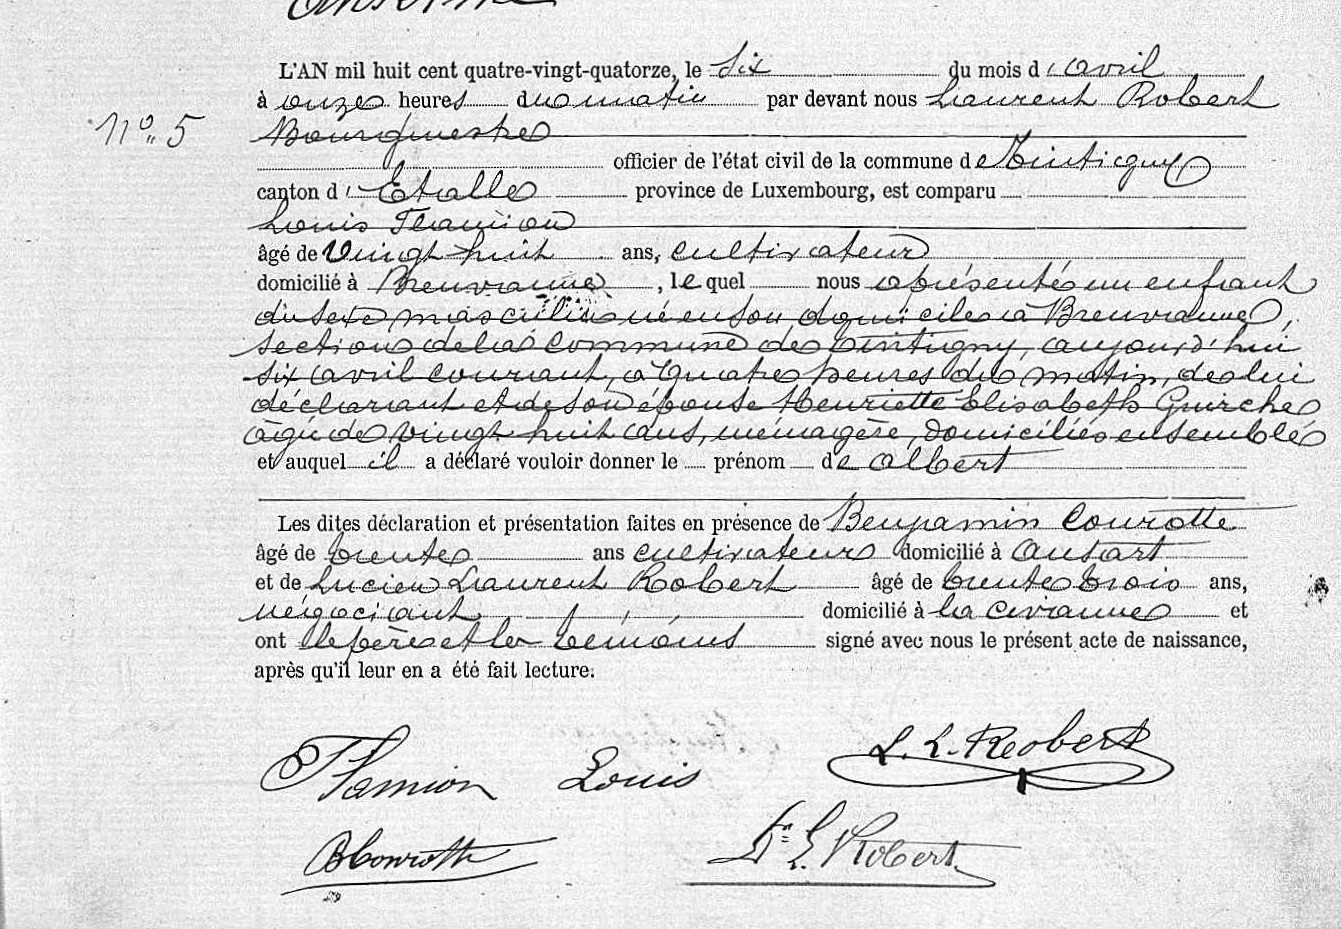 L'AN mil huit cent quatre-vingt-quatorze, le six du mois d'avril
à onze heures du matin par devant nous Laurent Robert
N° 5
Bourgmestre
officier de l'état civil de la commune de Tintigny
canton d'Etalle province de Luxembourg, est comparu
Louis Flamion
âgé de vingt huit ans, cultivateur
domicilié à Breuvanne, lequel nous a présenté un enfant
du sexe masculin né en son domicile à Breuvanne,
section de la commune de Tintigny, aujourd'hui
six avril courant, à quatre heures du matin, de lui
déclarant et de son épouse Henriette Elisabeth Guirche
âgée de vingt huit ans, ménagère, domiciliés ensemble
et auquel il a déclaré vouloir donner le prénom de Albert
Les dites déclaration et présentation faites en présence de Benjamin Courotte
âgé de trente ans cultivateur domicilié à Ansart
et de Lucien Laurent Robert âgé de trente trois ans,
négociant domicilié à la civanne et
ont le père et les témoins signé avec nous le présent acte de naissance,
après qu'il leur en a été fait lecture.
Flamion Louis L. L. Robert
B Courotte L. Robert